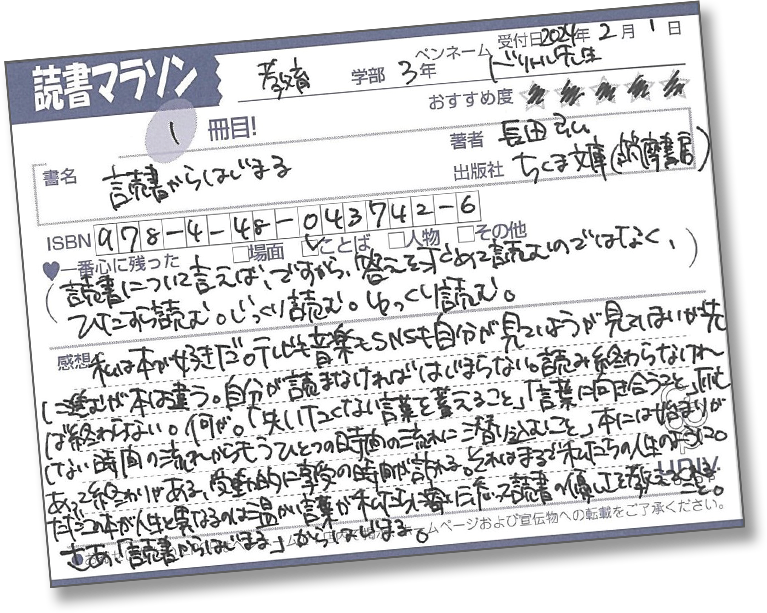 受付日2024年 2月 1日
読書マラソン 教育 学部 3年 ペンネーム ドリトル先生
おすすめ度 ★★★★★
1 冊目!
著者 長田弘
書名 読書からはじまる
出版社 ちくま文庫(筑摩書房)
ISBN 978-4-48-043742-6
♥一番心に残った □場面 ☑ことば □人物 □その他
(読書について言えば、ですから、答えを求めて読むのではなく、
ひたすら読む。じっくり読む。ゆっくり読む。)
感想 私は本が好きだ。テレビも音楽もSNSも自分が見ていようが見てしまいが先
に進むが本は違う。自分が読まなければはじまらない。読み終わらなけれ
ば終わらない。何が。「失いたくない言葉を蓄えること」「言葉に向き合うこと」「
しない時間の流れからもうひとつの時間の流れに潜り込むこと」本には始まりが
あって終わりがある、受動的に享受の時間が計れる。それはまるで私たちの人生のようだ。
ただこの本が人生と異なるのは温かい言葉が私たちに密に伝って読書の優しさを教える
こと。
さあ、「読書からはじまる」からはじまる。
ームページおよび宣伝物への転載をご了承ください。
univ.